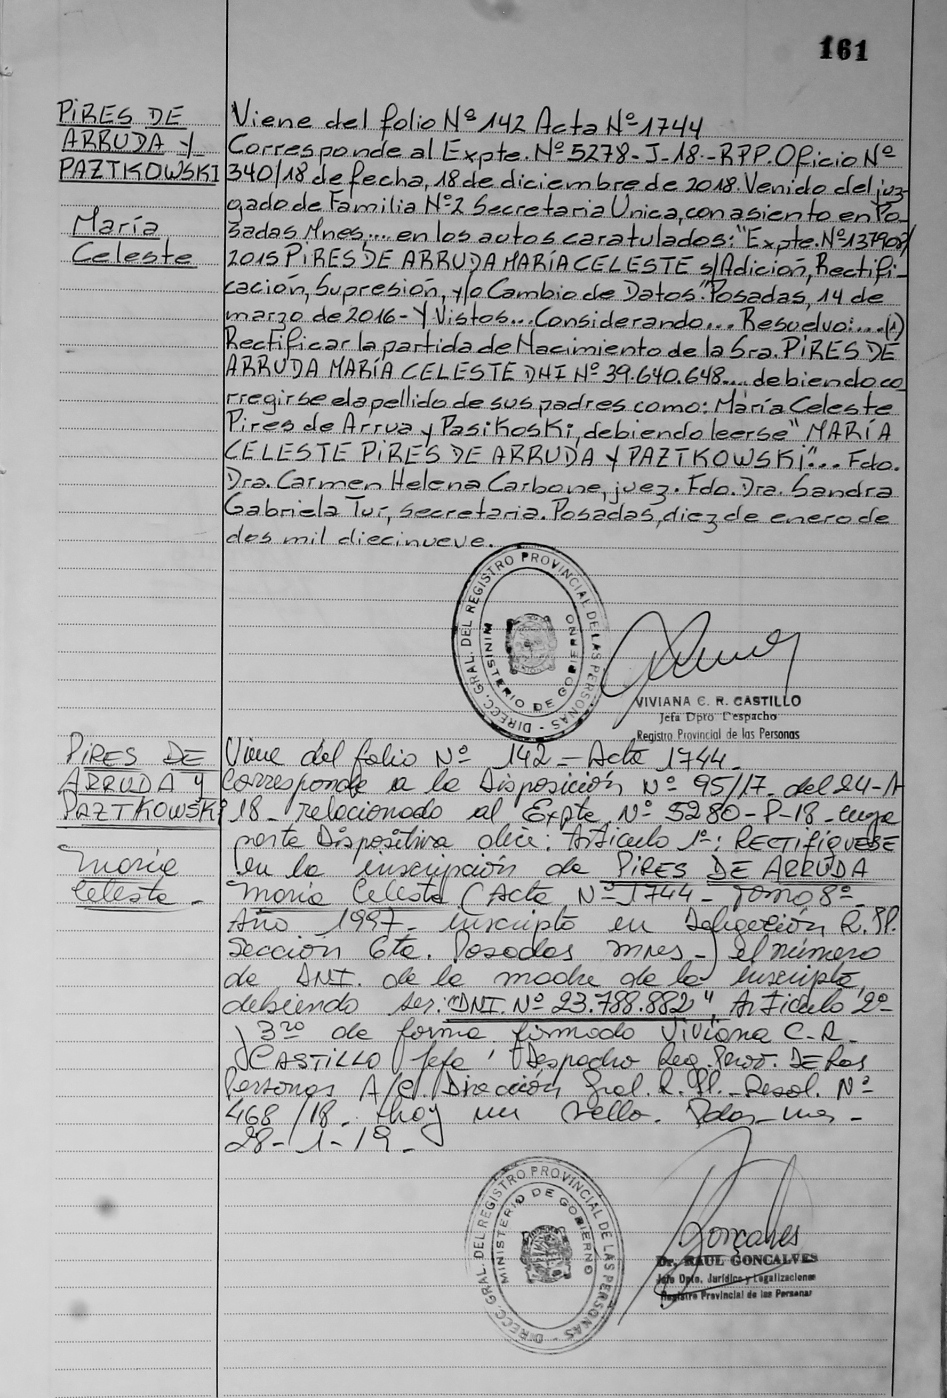 161
PIRES DE
ARRUDA Y
PAZTKOWSKI
María
Celeste
Viene del folio Nº 142 Acta Nº 1744
Corresponde al Expte. Nº 5278-J-18.-RPP. Oficio Nº
340/18 de fecha, 18 de diciembre de 2018. Venido del juz-
gado de Familia Nº2 Secretaria Unica, con asiento en Po-
sadas Mnes,... en los autos caratulados: "Expte. Nº 137908/
2015 PIRES DE ARRUDA MARÍA CELESTE s/Adición, Rectifi-
cación, Supresión, y/o Cambio de Datos". Posadas, 14 de
marzo de 2016- Y Vistos... Considerando... Resuelvo:...(1)
Rectificar la partida de Nacimiento de la Sra. PIRES DE
ARRUDA MARÍA CELESTE DNI Nº 39.640.648.... debiendo co
rregirse el apellido de sus padres como: María Celeste
Pires de Arrua y Pasikoski, debiendo leerse "MARÍA
CELESTE PIRES DE ARRUDA Y PAZTKOWSKI"... Fdo.
Dra. Carmen Helena Carbone, juez. Fdo. Dra. Sandra
Gabriela Tur, Secretaria. Posadas, diez de enero de
dos mil diecinueve.
DIRECC. GRAL. DEL REGISTRO PROVINCIAL DE LAS PERSONAS
MINISTERIO DE GOBIERNO
VIVIANA C. R. CASTILLO
Jefa Dpto. Despacho
Registro Provincial de las Personas
PIRES DE
ARRUDA Y
PAZTKOWSKI
María
Celeste.
Viene del folio Nº 142 - Acta 1744.
Corresponde a la Disposición Nº 95/17. del 24-A
18- relacionado al Expte. Nº 5280-P-18- cuya
parte Dispositiva dice: Articulo 1º: RECTIFIQUESE
en la inscripción de PIRES DE ARRUDA
María Celeste (Acta Nº 1744 - Tomo 8º-
Año 1997- inscripto en Delegación R.PP.
Sección 6ta. Posadas mnes-) el número
de DNI. de la madre de la inscripta,
debiendo ser: "DNI. Nº 23.788.882", Articulo 2º-
y 3ro de forma firmado Viviana C.R.
CASTILLO Jefa Despacho Reg. Prov. DE Las
Personas A/C. Dirección Gral. R.PP.- Resol. Nº
468/18. Hay un sello. Pdas-mes-
28-1-19.-
DIRECC. GRAL. DEL REGISTRO PROVINCIAL DE LAS PERSONAS
MINISTERIO DE GOBIERNO
Goncalves
Dr. RAUL GONCALVES
Jefe Dpto. Jurídico y Legalizaciones
Registro Provincial de las Personas